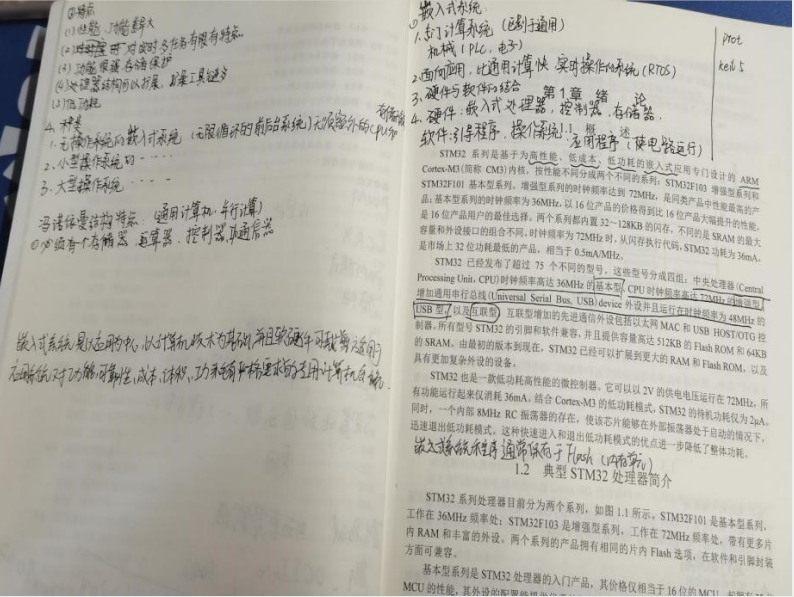 ③特点
(1)性能、功能
(2) 对实时多任务有很有特点
(3) 功能很强存储保护
(4)处理器结构可以扩展,
(5)低功耗
4. 种类
1. 无操作系统的嵌入式系统 (无限循环的前后台系统)
2. 小型操作系统的……
3. 大型操作系统……
冯诺依曼结构特点: (通用计算机, 并行计算)
有个存储器、运算器、控制器
嵌入式系统是以应用为中心, 以计算机技术为基础, 并且软硬件可裁剪, 适用于
应用系统对功能、可靠性、成本、体积、功耗有严格要求的专用计算机系统。
嵌入式系统:
1. 专门计算系统 (区别于通用)
机械 (PLC, 电子)
2. 面向应用, 比通用计算快 实时操作的系统 (RTOS)
3. 硬件与软件的结合
prot
keil 5
第1章 绪 论
4. 硬件: 嵌入式处理器, 控制器, 存储器.
软件: 引导程序, 操作系统, 应用程序 (使电路运行)
1.1 概 述
STM32 系列是基于为高性能、低成本、低功耗的嵌入式应用专门设计的 ARM
Cortex-M3(简称 CM3)内核,按性能不同分成两个不同的系列:STM32F103 增强型系列和
STM32F101 基本型系列。增强型系列的时钟频率达到 72MHz,是同类产品中性能最高的产
品;基本型系列的时钟频率为 36MHz,以 16 位产品的价格得到比 16 位产品大幅提升的性能,
是 16 位产品用户的最佳选择。两个系列都内置 32～128KB 的闪存,不同的是 SRAM 的最大
容量和外设接口的组合不同。时钟频率为 72MHz 时,从闪存执行代码,STM32 功耗为 36mA,
是市场上 32 位功耗最低的产品,相当于 0.5mA/MHz。
STM32 已经发布了超过 75 个不同的型号。这些型号分成四组:中央处理器(Central
Processing Unit, CPU)时钟频率高达 36MHz 的基本型、CPU 时钟频率高达 72MHz 的增强型、
增加通用串行总线(Universal Serial Bus, USB)device 外设并且运行在时钟频率为 48MHz 的
USB 型,以及互联型。互联型增加的先进通信外设包括以太网 MAC 和 USB HOST/OTG 控
制器,所有型号 STM32 的引脚和软件兼容,并且提供容量高达 512KB 的 Flash ROM 和 64KB
的 SRAM。由最初的版本到现在,STM32 已经可以扩展到更大的 RAM 和 Flash ROM,以及
具有更加复杂外设的设备。
STM32 也是一款低功耗高性能的微控制器。它可以以 2V 的供电电压运行在 72MHz,所
有功能运行起来仅消耗 36mA。结合 Cortex-M3 的低功耗模式,STM32 的待机功耗仅为 2μA。
同时,一个内部 8MHz RC 振荡器的存在,使该芯片能够在外部振荡器处于启动的情况下,
迅速退出低功耗模式。这种快速进入和退出低功耗模式的优点进一步降低了整体功耗。
嵌入式系统程序通常保存于 Flash (内存单元)
1.2 典型 STM32 处理器简介
STM32 系列处理器目前分为两个系列,如图 1.1 所示。STM32F101 是基本型系列,
工作在 36MHz 频率处;STM32F103 是增强型系列,工作在 72MHz 频率处,带有更多片
内 RAM 和丰富的外设。两个系列的产品拥有相同的片内 Flash 选项,在软件和引脚封装
方面可兼容。
基本型系列是 STM32 处理器的入门产品,其价格仅相当于 16 位的 MCU,
MCU 的性能,